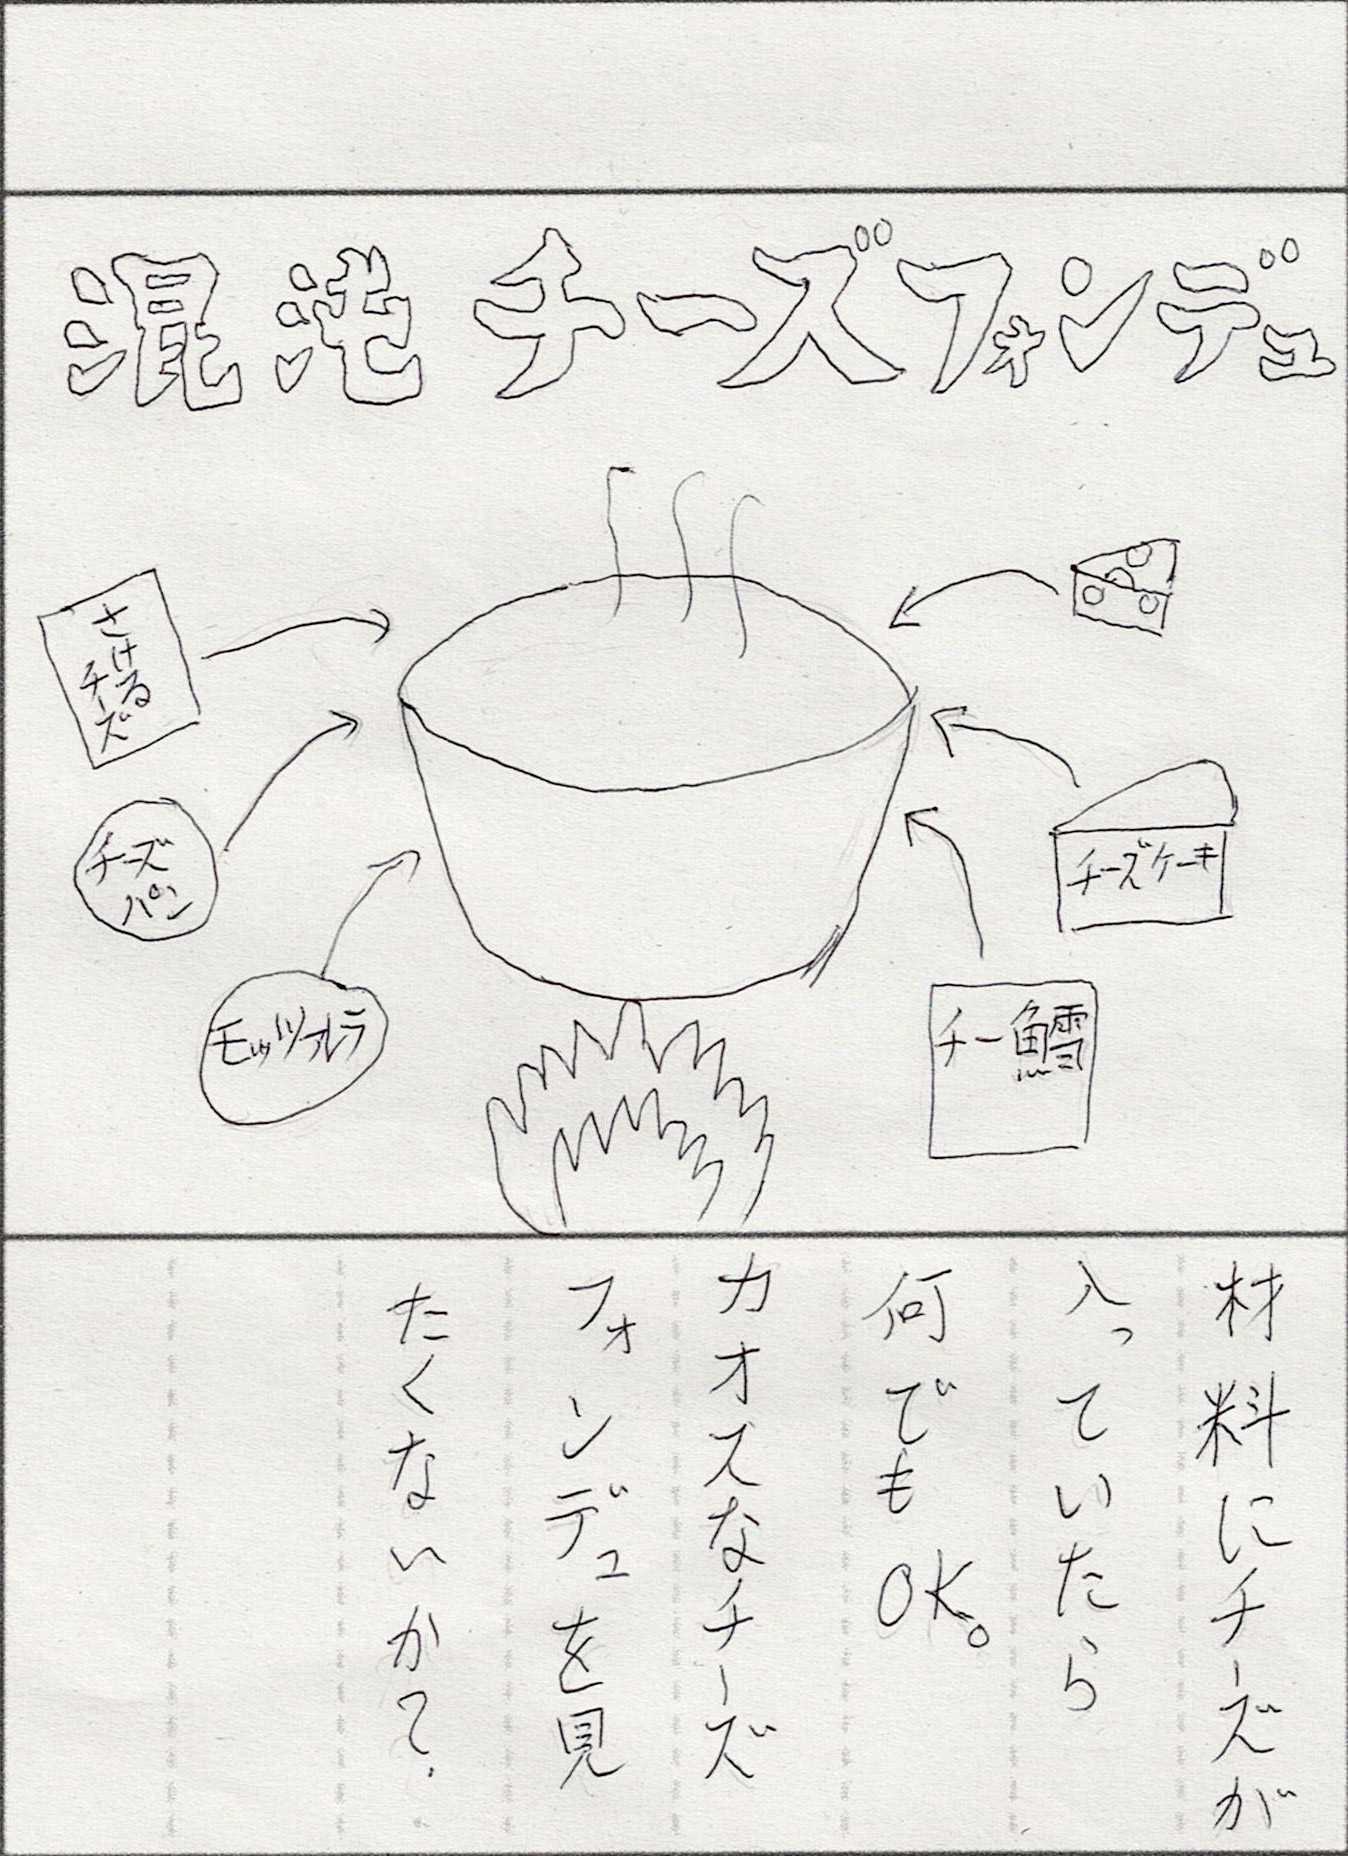 混沌チーズフォンデュ
さける
チーズ
チーズ
パン
モッツァレラ
チーズケーキ
チー鱈
材料にチーズが
入っていたら
何でもOK。
カオスなチーズ
フォンデュを見
たくないかて.